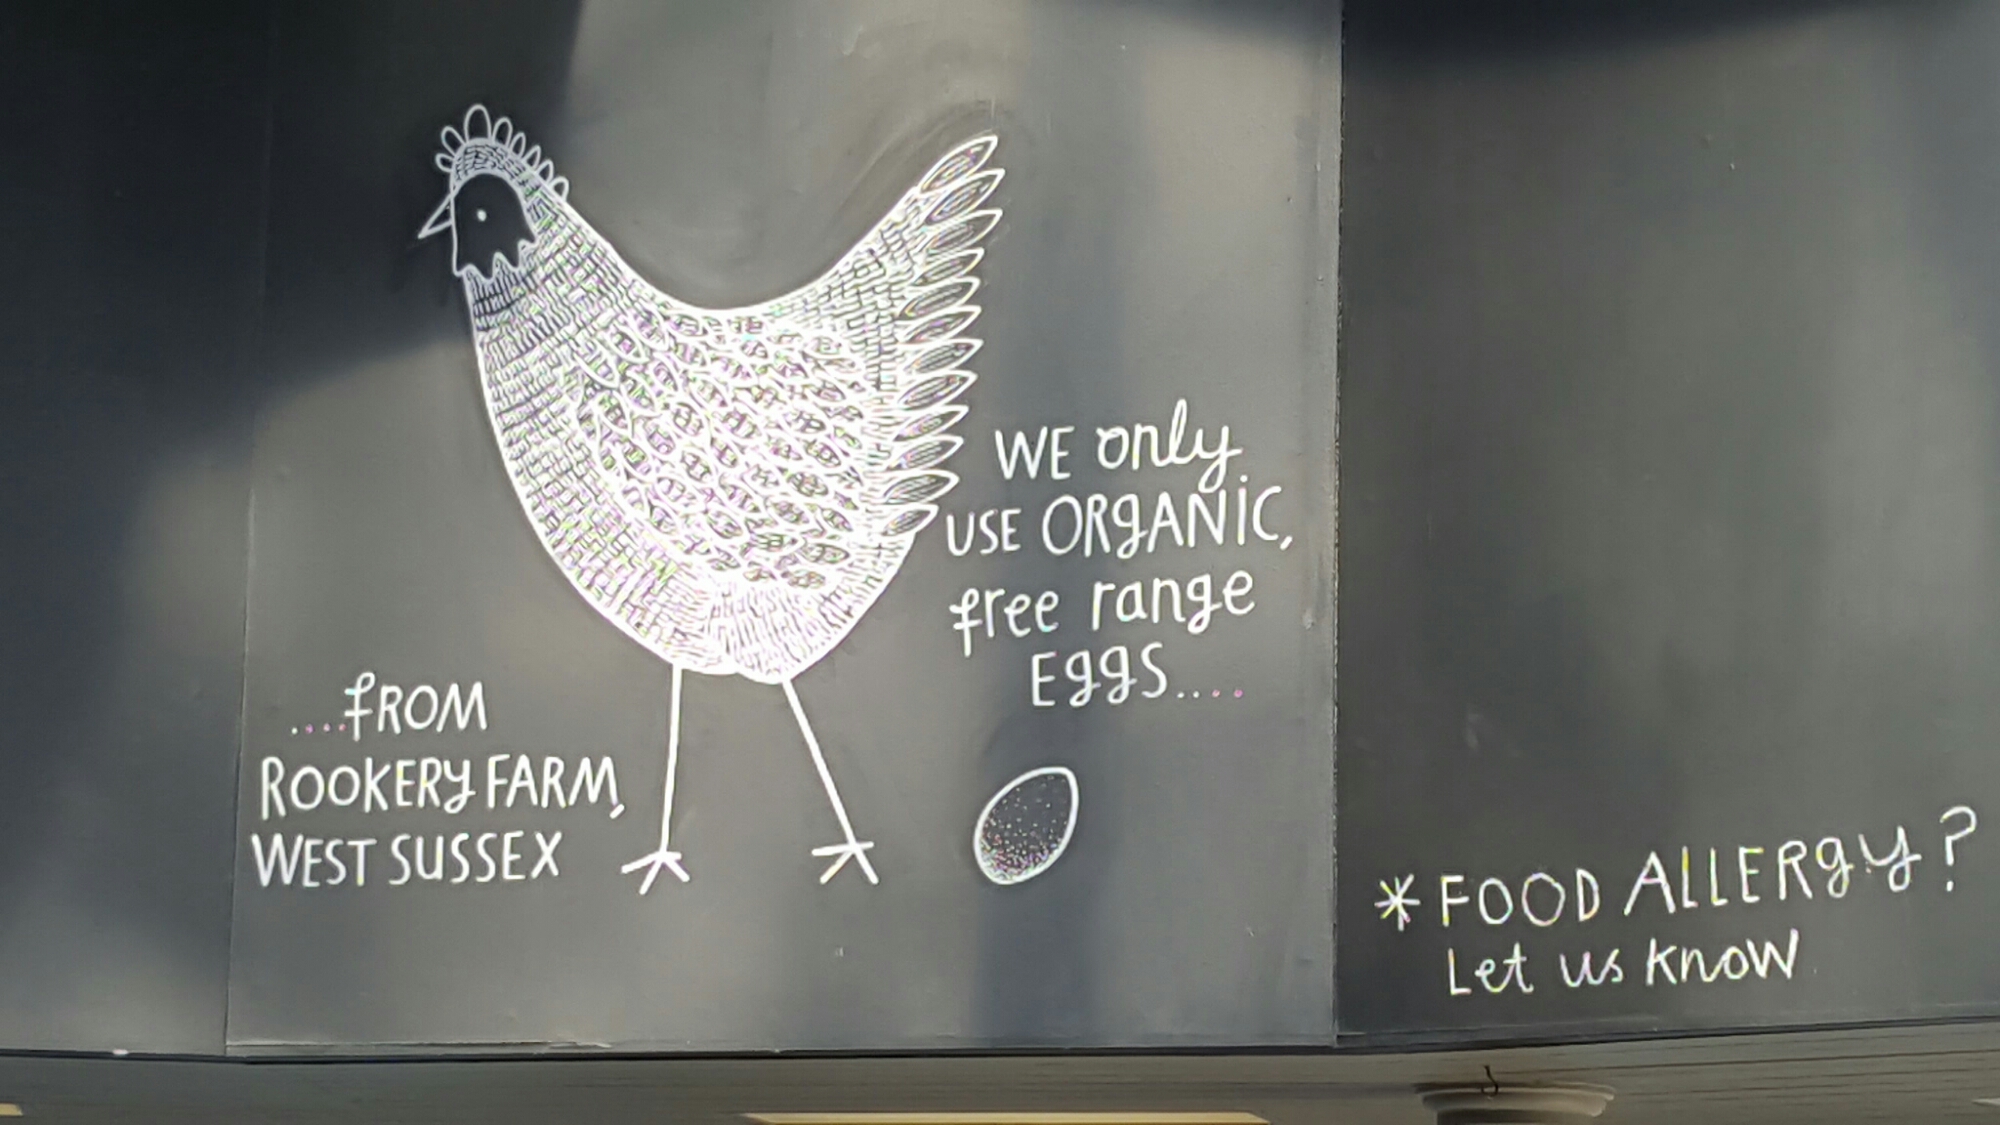 WE only
USE ORGANIC,
free range
EGGS....
....FROM
ROOKERY FARM,
WEST SUSSEX
* FOOD ALLERGY?
Let us know